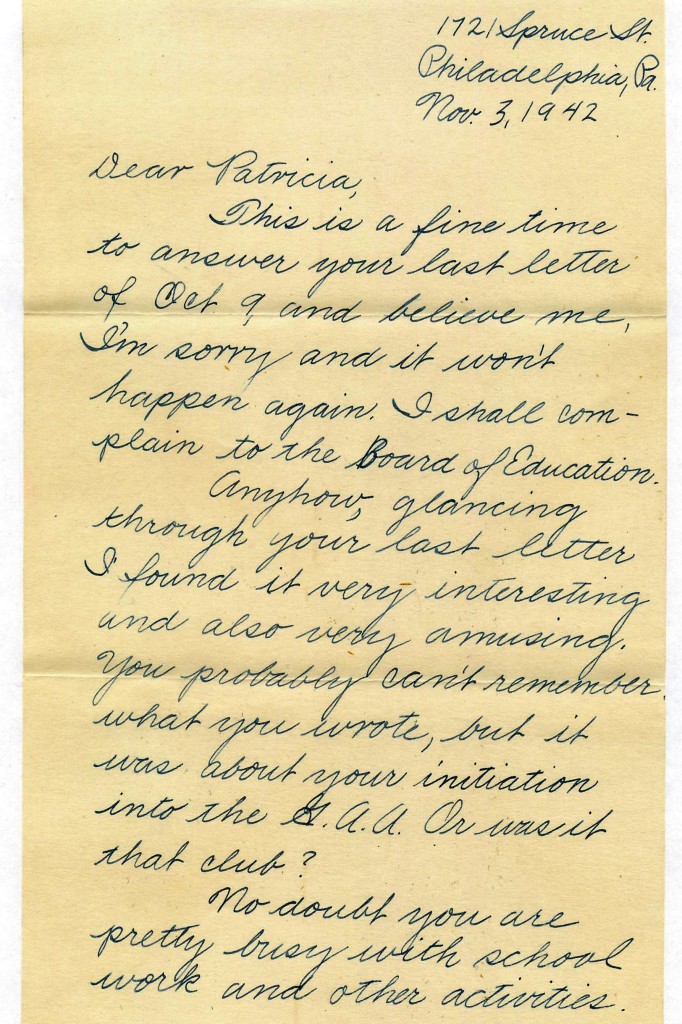 1721 Spruce St.
Philadelphia, Pa.
Nov. 3, 1942
Dear Patricia,
This is a fine time
to answer your last letter
of Oct 9, and believe me,
I'm sorry and it won't
happen again. I shall com-
plain to the Board of Education.
Anyhow, glancing
through your last letter
I found it very interesting
and also very amusing.
You probably can't remember
what you wrote, but it
was about your initiation
into the G.A.A. Or was it
that club?
No doubt you are
pretty busy with school
work and other activities.